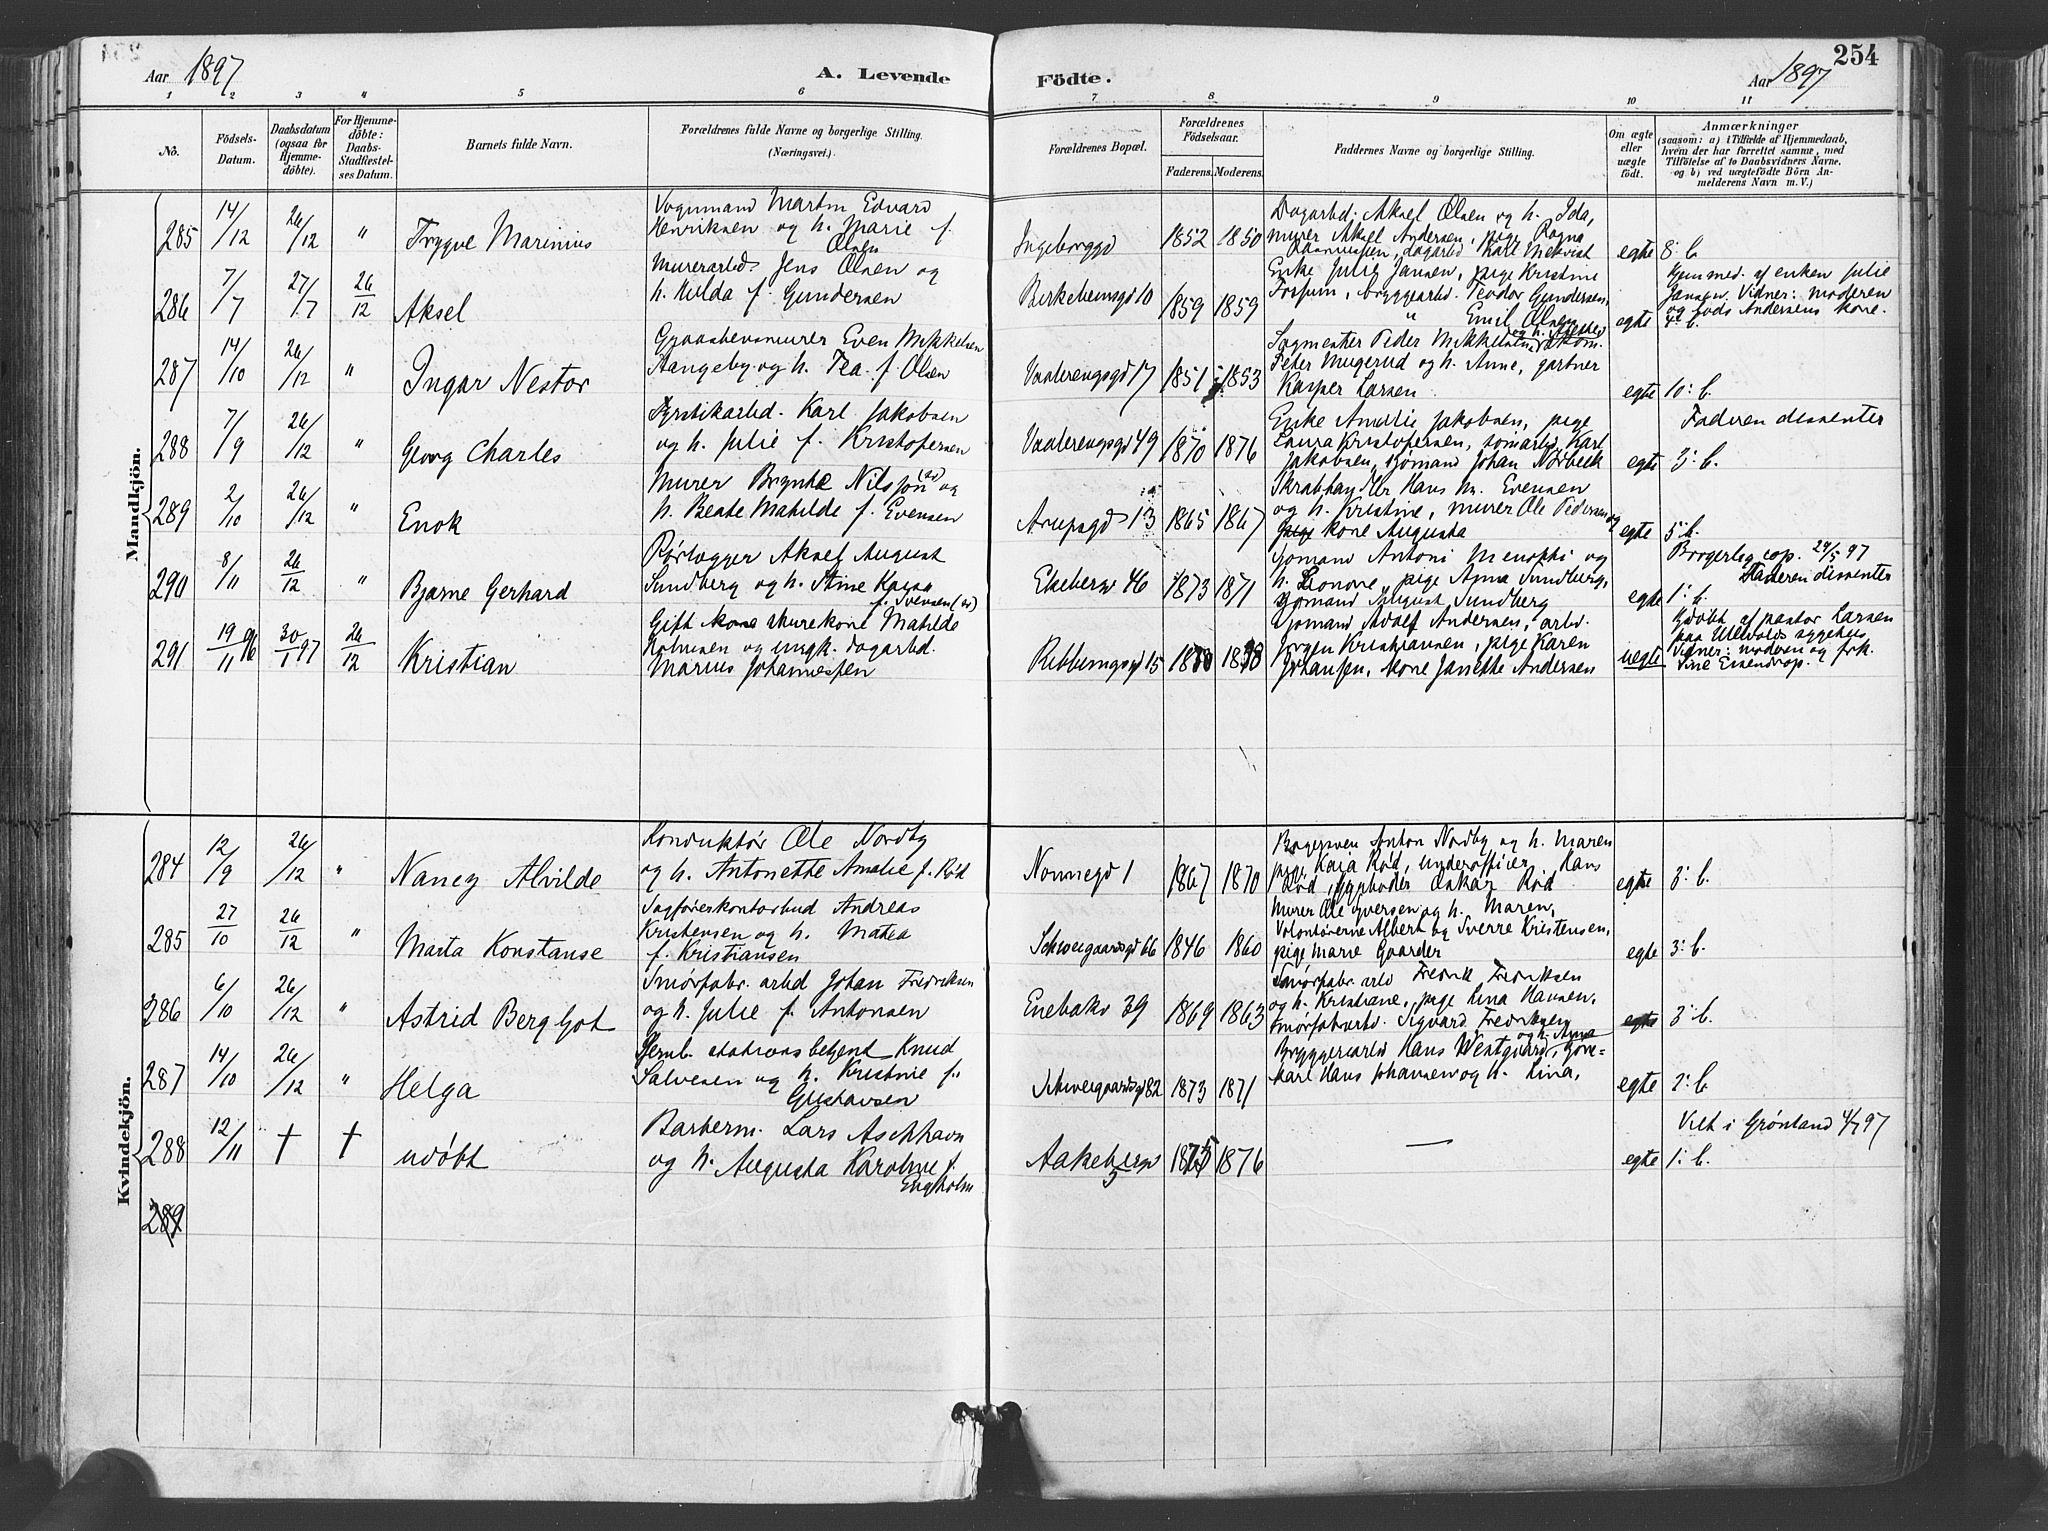 254
Aar 1897
A. Levende
Födte.
Aar 1897
1 2 3 " 5 6 7 8 9 10 11
No.
Födsels-
Datum.
Daabsdatum
(ogsaa for
Hjemme-
döbte).
For Hjemme-
döbte:
Daabs-
Stadfæstel-
ses Datum.
Barnets fulde Navn.
Forældrenes fulde Navne og borgerlige Stilling.
(Næringsvei.)
Forældrenes Bopæl.
Forældrenes
Födselsaar.
Faderens.
Moderens.
Faddernes Navne og borgerlige Stilling.
Om ægte
eller
uægte
födt.
Anmærkninger
(saasom: a) i Tilfælde af Hjemmedaab,
hvem der har forrettet samme, med
Tilföielse af to Daabsvidners Navne,
og b) ved uægtefödte Börn An-
melderens Navn m. V.)
Mandkjön.
285 14/12 26/12 " Trygve Marinius
Vognmand Martin Edvard
Henriksen og h. Marie f.
Olsen
Ingeborggd 1852 1850
Dagarbd. Aksel Olsen og h. Ida,
murer Aksel Andersen, pige Ragna
Rasmussen, dagarbd Karl
egte 8. b.
286 7/7 27/7 26/12 Aksel
Murerarbd. Jens Olsen og
h. Hilda f. Gundersen
Birkebeinsgd 10 1859 1859
Enke Julie Jansen, pige Kristine
Forsum, bryggearbd. Teodor Gundersen,
" Emil Olsen
egte 4. b.
Hjemmed. af enken Julie
Jansen. Vidner: moderen
og Andersens kone.
287 14/10 26/12 " Ingar Nestor
Even Mikkelsen
og h. Tea f. Olsen
Vaalerengsgd 17 1851 1853
Sagmester Peder Mikkelsen
Peter Mugerud og h. Anne, gartner
Kasper Larsen
egte 10. b.
288 7/9 26/12 " Georg Charles
Fyrstikarbd. Karl Jakobsen
og h. Julie f. Kristofersen
Vaalerengsgd 49 1870 1876
Enke Amalie Jakobsen, pige
Laura Kristofersen, Karl
Jakobsen, sjømand Johan Nørbeck
egte 3. b.
Faderen dissenter
289 2/10 26/12 " Enok
Murer Nilsson og
h. Beate Matilde f. Evensen
Arupsgd 13 1865 1867
Skraphandler Hans M. Evensen
og h. Kristine, murer Ole Pedersen og
kone Augusta
egte 5. b.
290 8/11 26/12 " Bjarne Gerhard
Rørlegger Aksel August
Sundberg og h. Stine Kajsa
f. Svensen
Ekebergv 46 1873 1871
Sjømand Antoni Menotti og
h. Lenore, pige Anna Sundberg,
sjømand August Sundberg
egte 1. b.
Borgerlig cop. 24/5 97
Faderen dissenter
291 19/11 96 30/1 97 26/12 Kristian
Gift murekone Matilde
og ungk. dagarbd.
Marius Johannessen
Ribbungsgd 15
Sjømand Adolf Andersen, arbd.
Jørgen Kristiansen, pige Karen
Johansen, kone Janette Andersen
uegte
Hjdøbt af pastor Larsen
paa Ullevolds sygehus
Vidner: moderen og frk.
Kvindekjön.
284 12/9 26/12 " Nancy Alvilde
Konduktør Ole Nordby
og h. Antonette Amalie f. Rød
Nonnegd 1 1867 1870
Bagersven Anton Nordby og h. Maren
pige Kaja Rød, underofficer Hans
Rød, Oskar Rød
egte 3. b.
285 27/10 26/12 " Marta Konstanse
Sagførerkontorbud Andreas
Kristensen og h. Matea
f. Kristiansen
Schweigaardsgd 66 1846 1860
Murer Ole Iversen og h. Maren,
Volontørerne Albert og Sverre Kristensen,
pige Marie Gaarder
egte 3. b.
286 6/10 26/12 " Astrid Bergljot
Smørfabr. arbd Johan Fredriksen
og h. Julie f. Antonsen
Enebakv 39 1869 1863
Smørfabr. arbd Fredrik Fredriksen
og h. Kristiane, pige Lina Hansen,
Smørfabrarbd. Sigvard Fredriksen
egte 3. b.
287 14/10 26/12 " Helga
Jernb. stationsbetjent Knud
Salvesen og h. Kristine f.
Gustavsen
Schweigaardsgd 82 1873 1871
Bryggeriarbd Hans Westgaard og h. Anna,
karl Hans Johansen og h. Lina,
egte 2. b.
288 12/11 † † udøbt
Barberm. Lars Aschhavn
og h. Augusta Karoline f.
Engholm
Aakebergv
5 1875 1876
—
egte 1. b.
Viet i Grønland 4/7 97
289